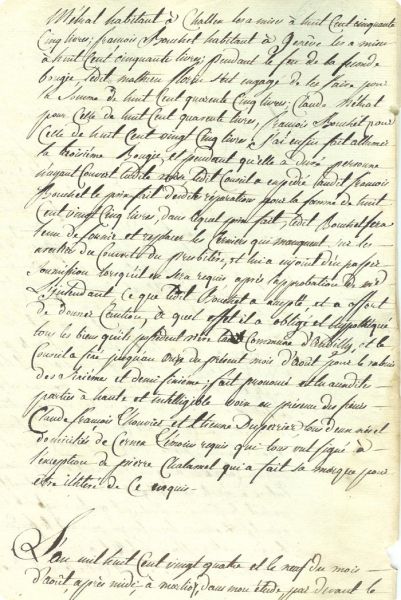 Métral habitant à Challex les a mises à huit Cent cinquante
Cinq livres; françois Bouchet habitant à Genève les a mises
à huit Cent cinquante livres; pendant le feu de la seconde
bougie ledit mathieu s'est engagé de les faire pour
la Somme de huit Cent quarente Cinq livres; Claude Métral
pour Celle de huit Cent quarente livres, françois Bouchet pour
Celle de huit Cent vingt Cinq livres & j'ai ensuite fait allumer
la troisième Bougie, et pendant qu'elle a duré personne
n'ayant Couvert ledit Conseil a expédié audit françois
Bouchet le prix fait desdites réparations pour la somme de huit
Cent vingt Cinq livres, dans lequel prix fait, ledit Bouchet sera
tenu de fournir et replacer les qui manquent
au Couvert du presbitère, et lui a enjoint d'en passer
Soumission lorsqu'il en Sera requis après l'approbation de
l'Intendant Ce que ledit Bouchet a accepté et a offert
de donner Caution, à quel effet il a obligé et hypothéqué
tous les biens qu'ils possèdent Commune d'Ambilly, et le
Conseil a fixé jusqu'au onze du présent mois d'août pour le rabais
des sixième et demi sixième; fait prononcé et lu auxdites
parties à haute et intelligible voix en présence des sieurs
Claude françois Thouvier et Etienne Duperrier tous deux nés et
domiciliés de Cornex témoins requis qui tous ont signé à
l'exception de pierre Chatanel qui a fait sa marque pour
être illitéré de Ce enquis.
L'an mil huit Cent vingt quatre et le neuf du mois
d'août, après midi, à , dans mon étude, par devant le